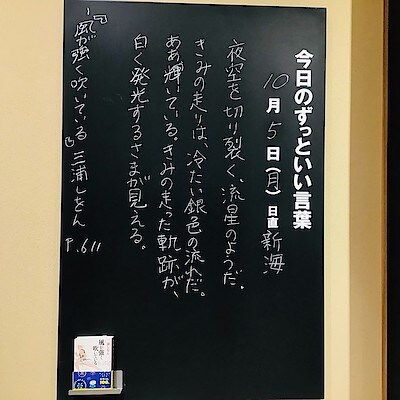 今日のずっといい言葉
10月5日(月)日直 新海
夜空を切り裂く、流星のようだ。
きみの走りは、冷たい銀色の流れだ。
ああ輝いている。きみの走った軌跡が、
白く発光するさまが見える。
『風が強く吹いている』三浦しをん
P.611
風が強く
吹いている